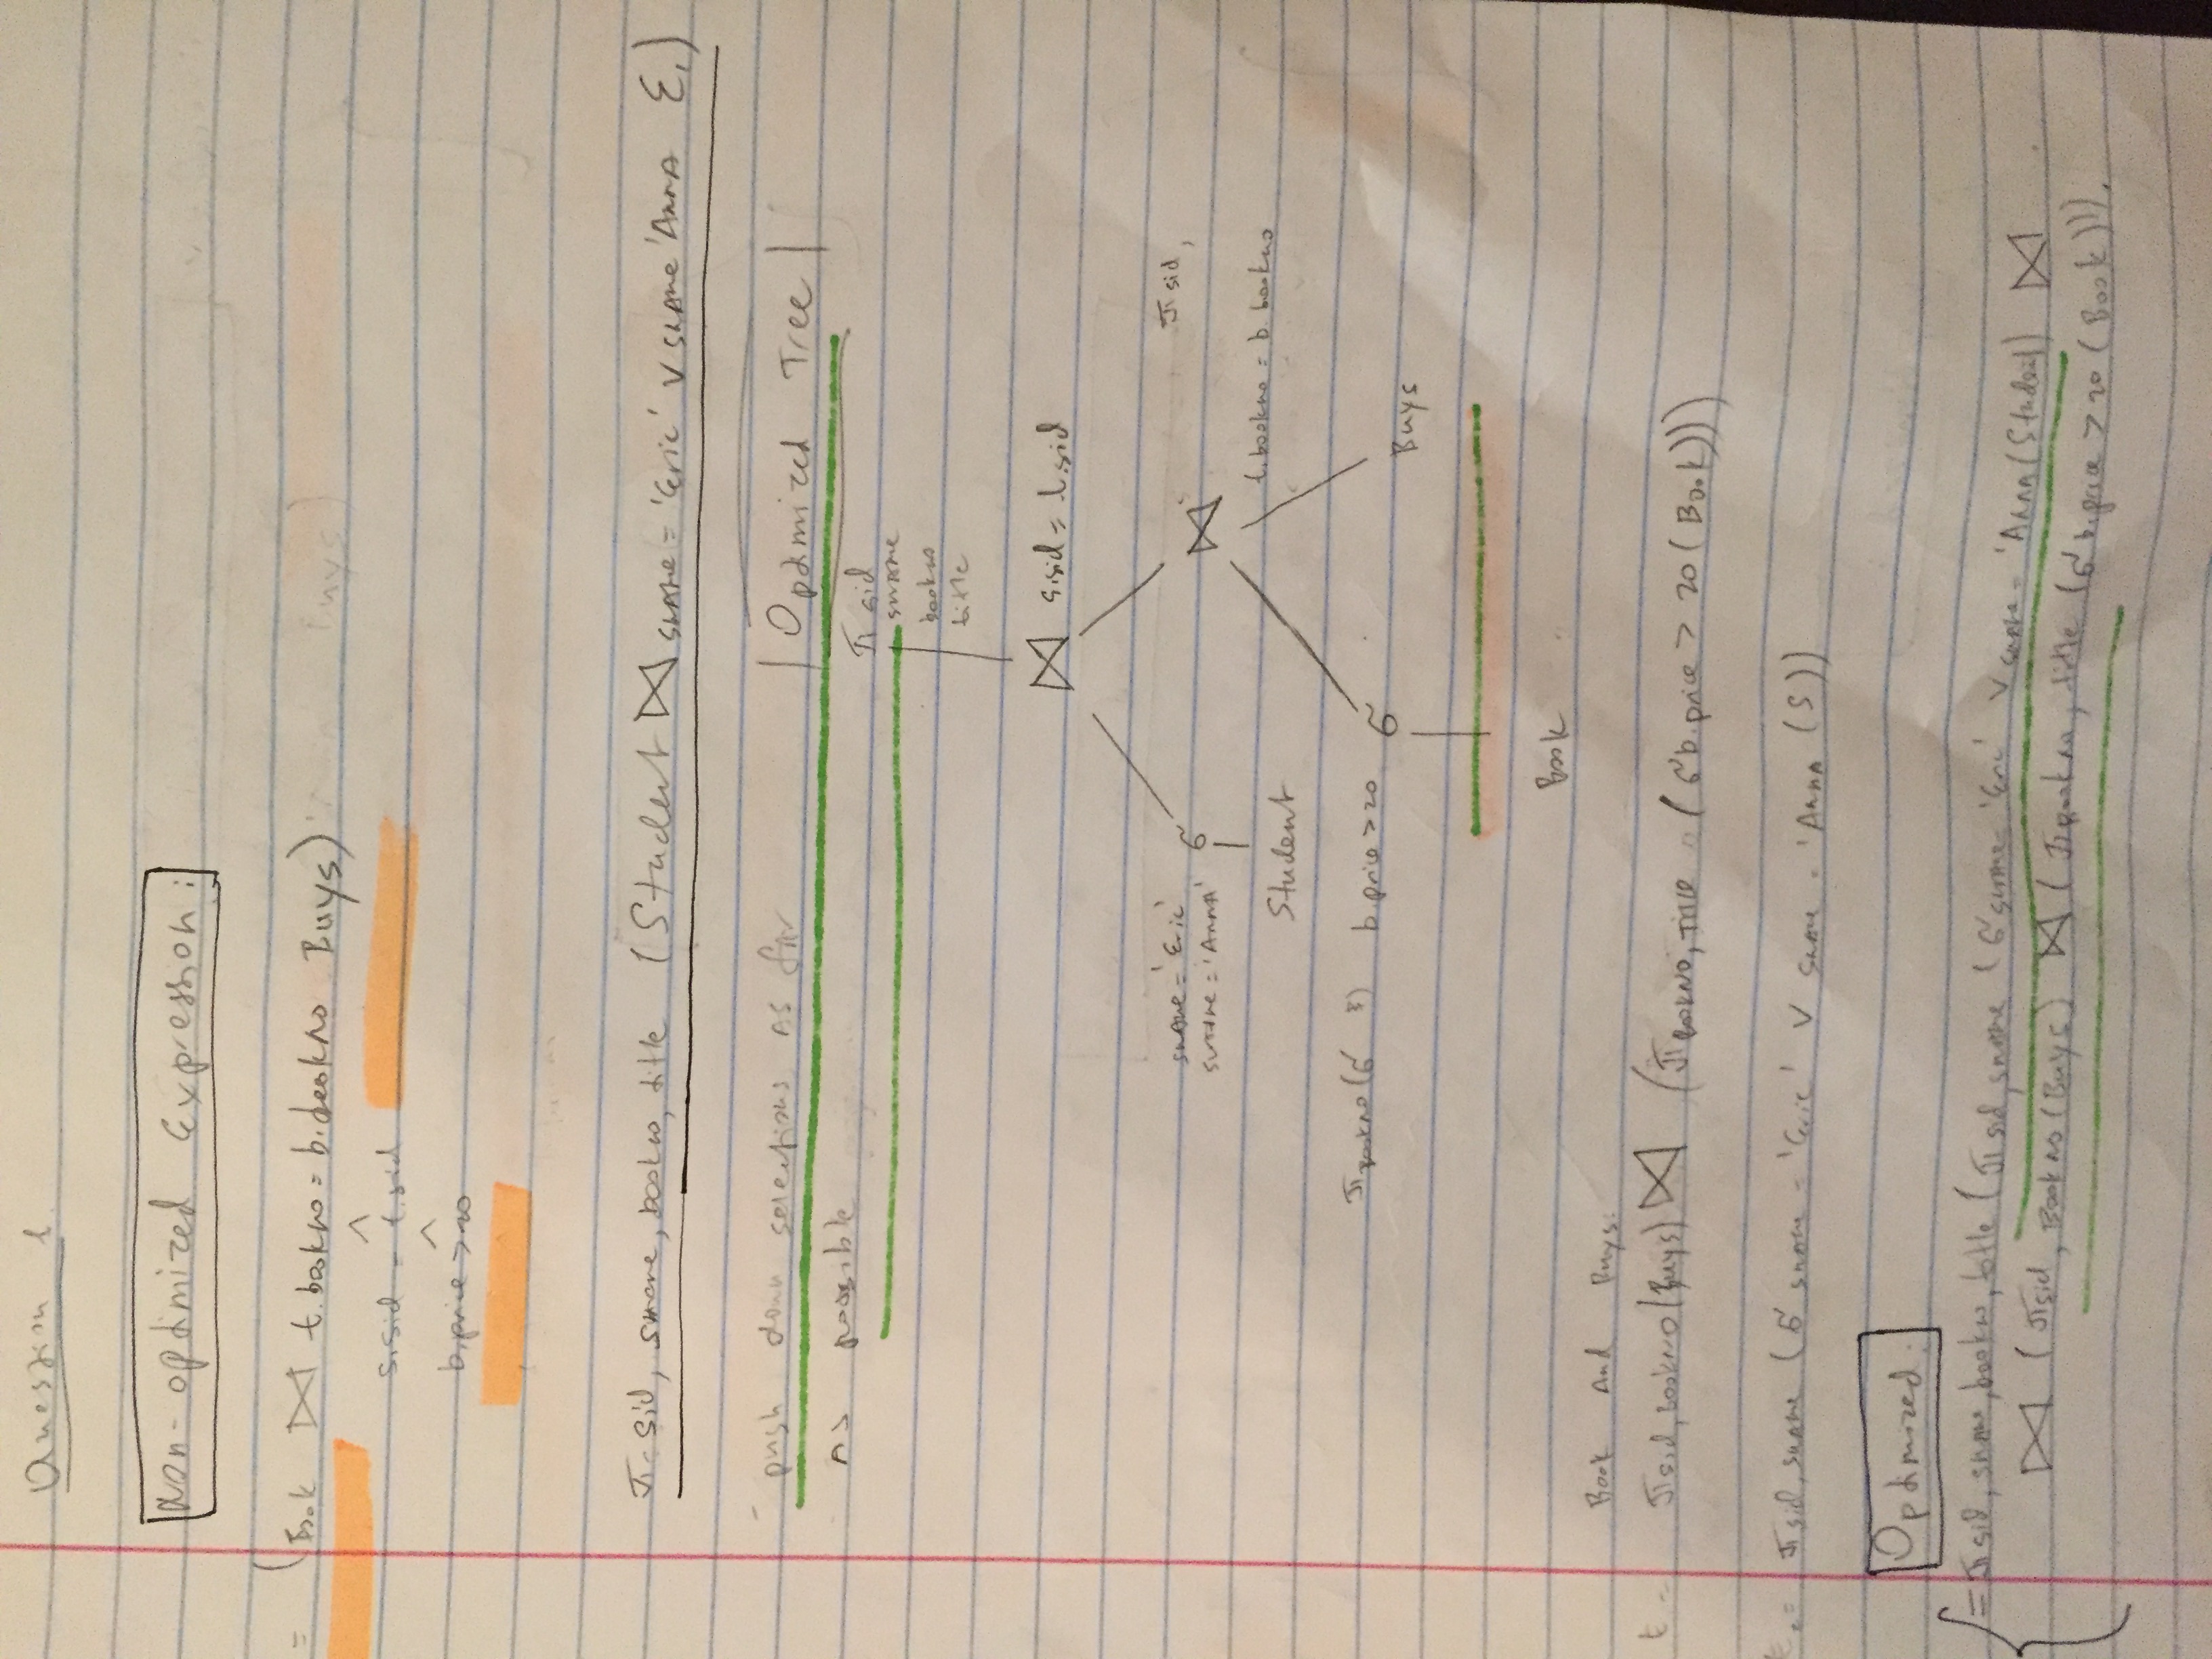 Question 1.
Non-optimized Expression:
= (Book ⋈ t.bookno = b.bookno Buys)
^
s.sid = t.sid
^
b.price > 20
π sid, sname, bookno, title (Student ⋈ sname = 'Eric' ∨ sname 'Anna E₁)
- push down selections as far
as possible
Optimized Tree
π sid
sname
bookno
title
⋈ s.sid = t.sid
sname = 'Eric'
sname = 'Anna'
σ
⋈
π sid,
t.bookno = b.bookno
Student
π bookno (σ ) b.price > 20 σ
Buys
Book
Book And Buys:
t = π sid, bookno (Buys) ⋈ (π BookNo, Title (σ b.price > 20 (Book)))
= π sid, sname (σ sname = 'Eric' ∨ sname = 'Anna (S))
Optimized:
= π sid, sname, bookno, title (π sid, sname (σ sname = 'Eric' ∨ sname = 'Anna (Student) ⋈
⋈ (π sid, BookNo (Buys) ⋈ (π BookNo, title (σ b.price > 20 (Book))).